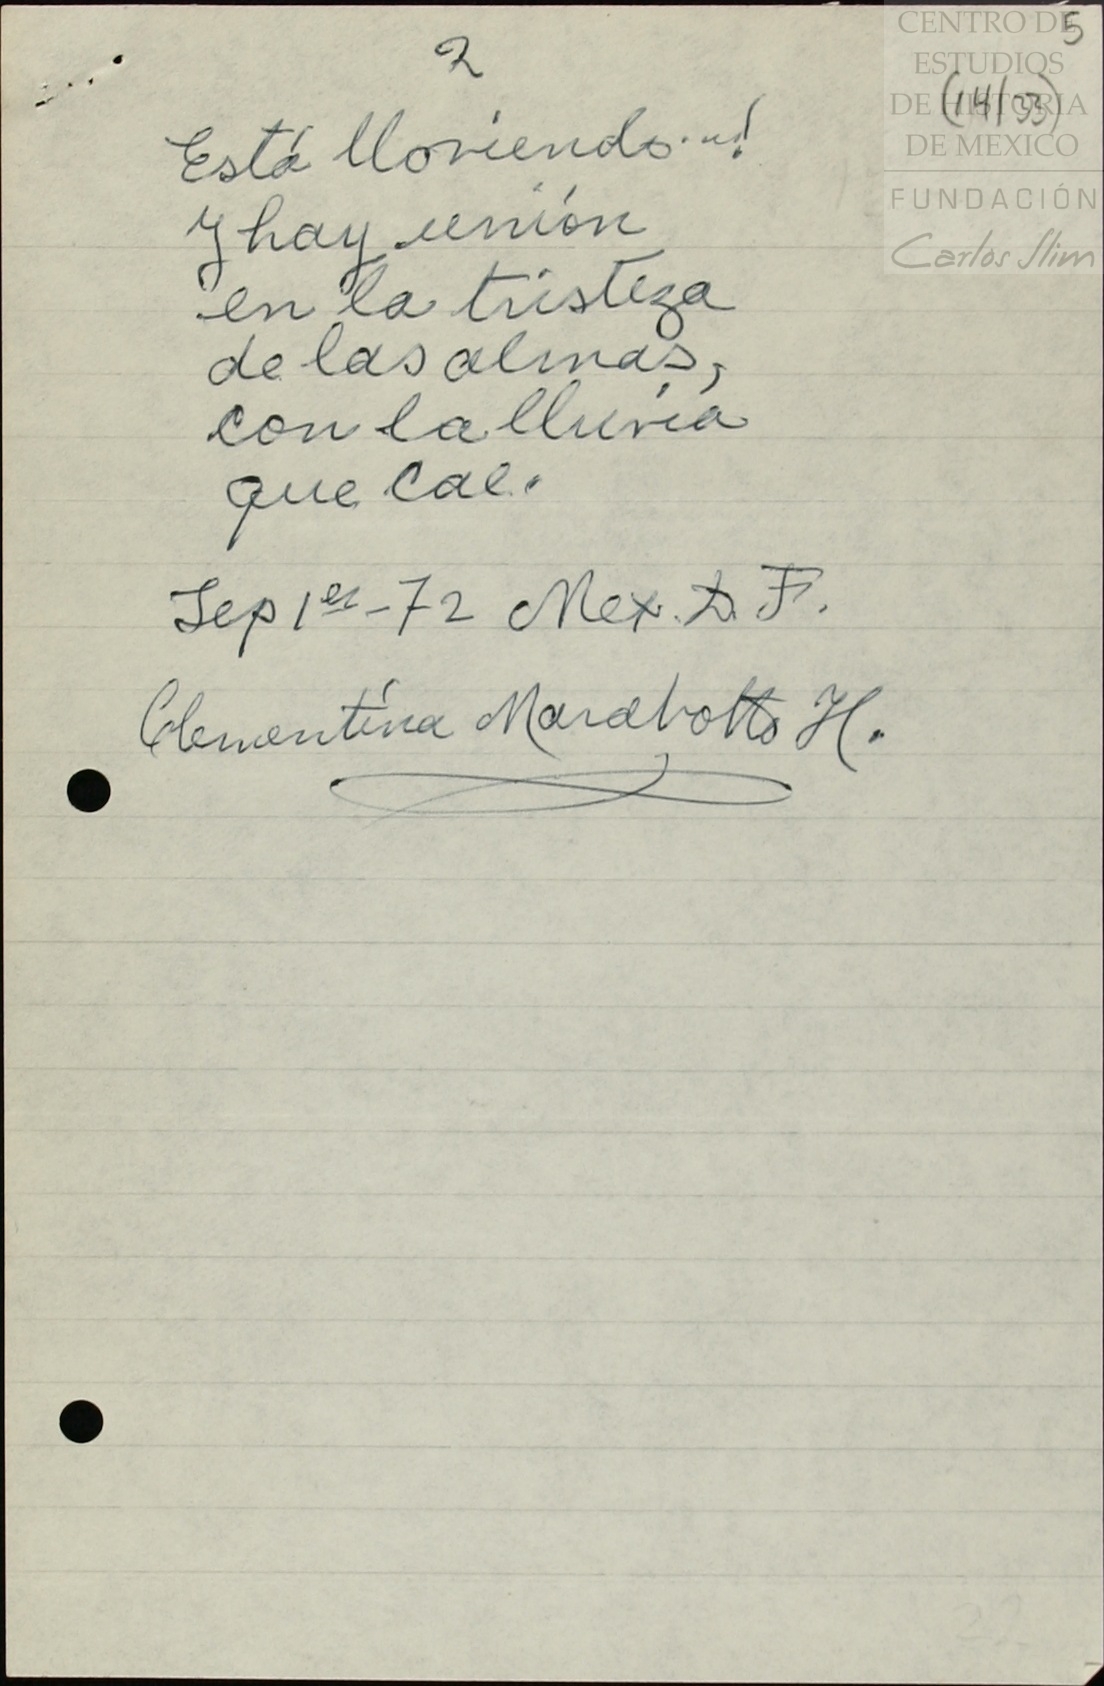 2
5
(14/33)
CENTRO DE
ESTUDIOS
DE HISTORIA
DE MEXICO
FUNDACIÓN
Carlos Slim
Está lloviendo...!
Y hay unión
en la tristeza
de las almas,
con la lluvia
que cae.
Sep 1er - 72 Mex. D. F.
Clementina Marabotto H.